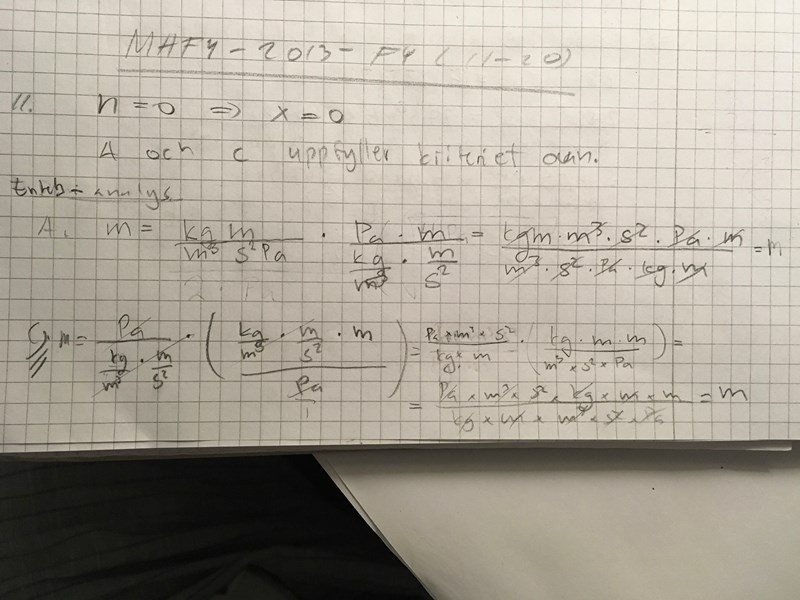 MAFY - 2013 - FY (11-20)
11. h = 0 ⇒ x = 0
A och C uppfyller kriteriet ovan.
Enhets-analys
A. m = kg m / m³ s² Pa · Pa · m / (kg/m³ · m/s²) = kg m · m³ · s² · Pa · m / m³ · s² · Pa · kg · m = m
C. m = Pa / (kg/m³ · m/s²) · ((kg/m³ · m/s² · m) / (Pa/1)) = Pa × m³ × s² / kg × m · (kg · m · m / m³ × s² × Pa) =
= Pa × m³ × s² × kg × m × m / kg × m × m³ × s² × Pa = m